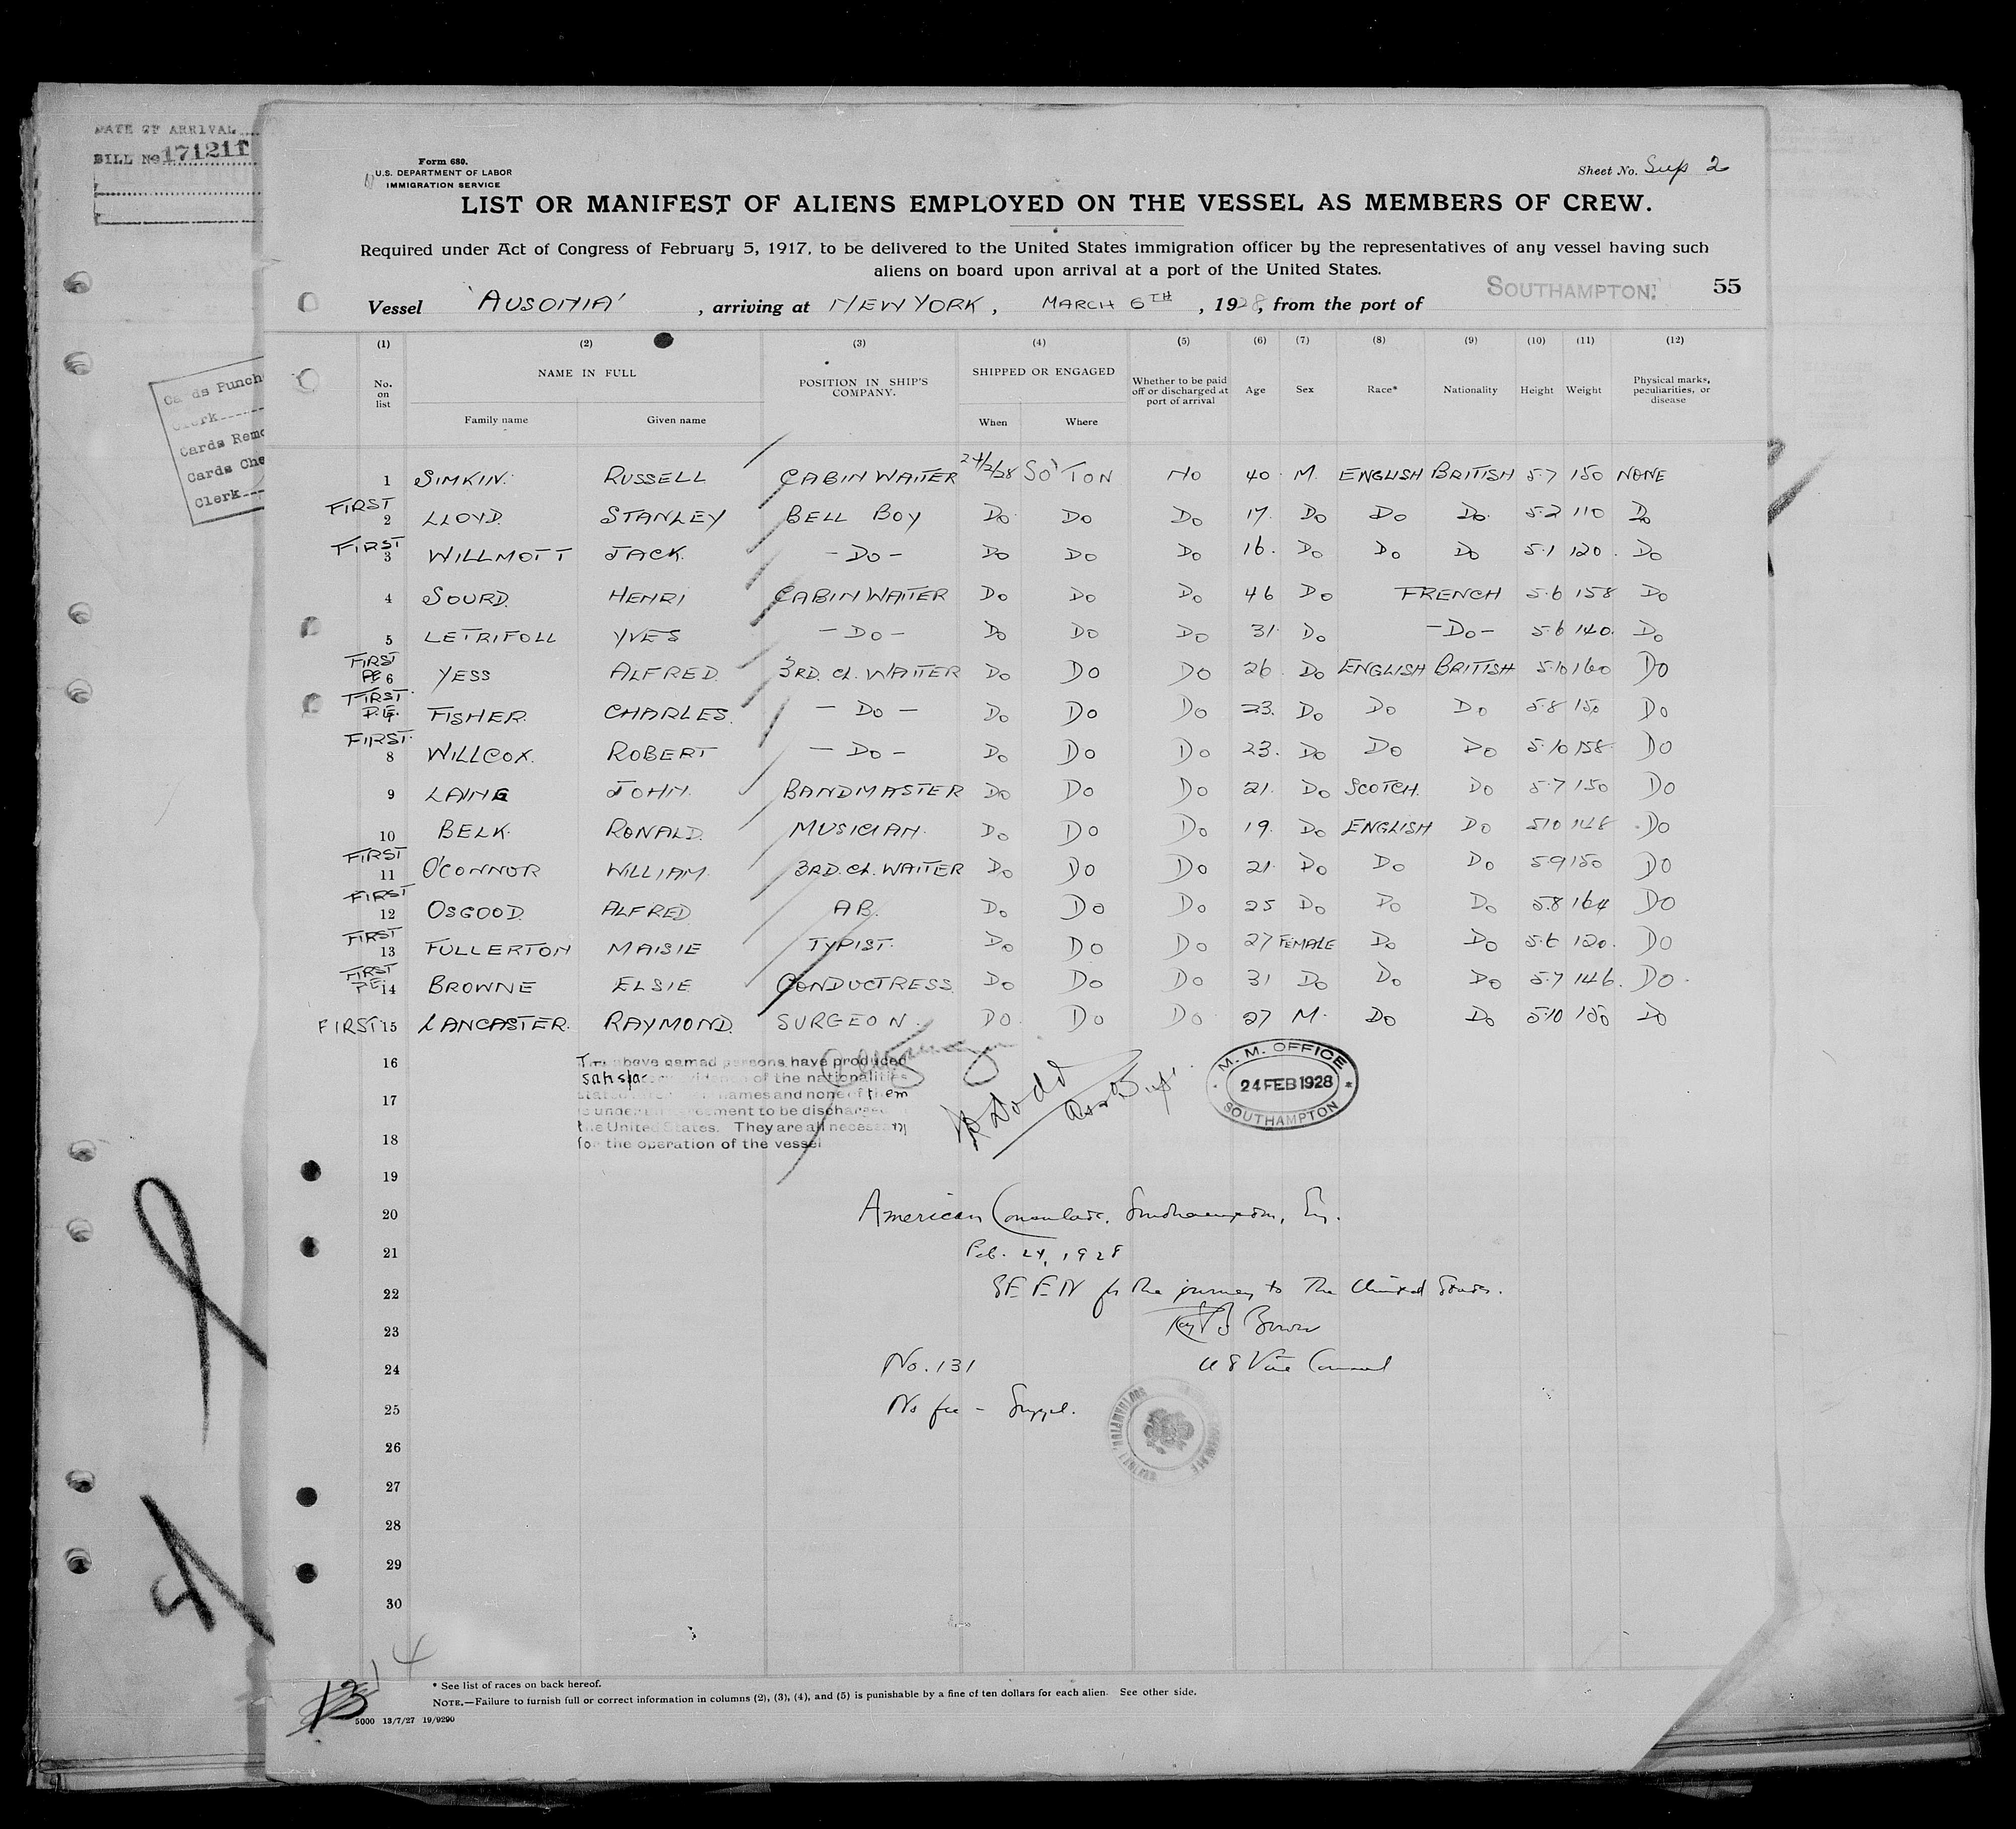 DATE OF ARRIVAL
BILL No 171211
Cards Punch
Clerk
Cards Remo
Cards Che
Clerk
Form 680.
U.S. DEPARTMENT OF LABOR
IMMIGRATION SERVICE
Sheet No. Sup 2
LIST OR MANIFEST OF ALIENS EMPLOYED ON THE VESSEL AS MEMBERS OF CREW.
Required under Act of Congress of February 5, 1917, to be delivered to the United States immigration officer by the representatives of any vessel having such
aliens on board upon arrival at a port of the United States.
Vessel 'AUSONIA', arriving at NEW YORK, MARCH 6TH, 1928, from the port of SOUTHAMPTON. 55
(1) (2) (3) (4) (5) (6) (7) (8) (9) (10) (11) (12)
No. on list NAME IN FULL POSITION IN SHIP'S COMPANY. SHIPPED OR ENGAGED Whether to be paid off or discharged at port of arrival Age Sex Race* Nationality Height Weight Physical marks, peculiarities, or disease
Family name Given name When Where
1 SIMKIN. RUSSELL CABIN WAITER 24/2/28 SO'TON NO 40 M. ENGLISH BRITISH 5.7 150 NONE
FIRST 2 LLOYD. STANLEY BELL BOY Do Do Do 17. Do Do Do. 5.2 110 Do
FIRST 3 WILLMOTT JACK. - Do - Do Do Do 16. Do Do Do 5.1 120. Do
4 SOURD. HENRI CABIN WAITER Do Do Do 46 Do FRENCH 5.6 158 Do
5 LETRIFOLL YVES - Do - Do Do Do 31. Do - Do - 5.6 140. Do
FIRST PE 6 YESS ALFRED. 3RD. CL. WAITER Do Do Do 26. Do ENGLISH BRITISH 5.10 160 Do
FIRST. P.E. 7 FISHER. CHARLES. - Do - Do Do Do 23. Do Do Do 5.8 150 Do
FIRST. 8 WILLCOX. ROBERT - Do - Do Do Do 23. Do Do Do 5.10 158 Do
9 LAING JOHN. BANDMASTER Do Do Do 21. Do SCOTCH. Do 5.7 150 Do
10 BELK. RONALD. MUSICIAN. Do Do Do 19. Do ENGLISH Do 5.10 148 Do
FIRST 11 O'CONNOR WILLIAM. 3RD. CL. WAITER Do Do Do 21. Do Do Do 5.9 150 Do
FIRST 12 OSGOOD. ALFRED A.B. Do Do Do 25 Do Do Do 5.8 164 Do
FIRST 13 FULLERTON MAISIE TYPIST. Do Do Do 27 FEMALE Do Do 5.6 120. Do
FIRST PE. 14 BROWNE ELSIE CONDUCTRESS. Do Do Do 31 Do Do Do 5.7 146. Do.
FIRST 15 LANCASTER. RAYMOND. SURGEON. Do. Do Do 27 M. Do Do 5.10 150 Do
16
17
18
19
20
21
22
23
24
25
26
27
28
29
30
The above named persons have produced
satisfactory evidence of the nationalities
stated after their names and none of them
is under agreement to be discharged
the United States. They are all necessary
for the operation of the vessel
Dodd
Asst Supt
M. M. OFFICE
24 FEB 1928
SOUTHAMPTON
American Consulate, Southampton, Eng.
Feb. 24, 1928
SEEN for the journey to the United States.
U S Vice Consul
No. 131
No fee - Suppl.
14
13
* See list of races on back hereof.
NOTE.—Failure to furnish full or correct information in columns (2), (3), (4), and (5) is punishable by a fine of ten dollars for each alien. See other side.
5000 13/7/27 19/9290